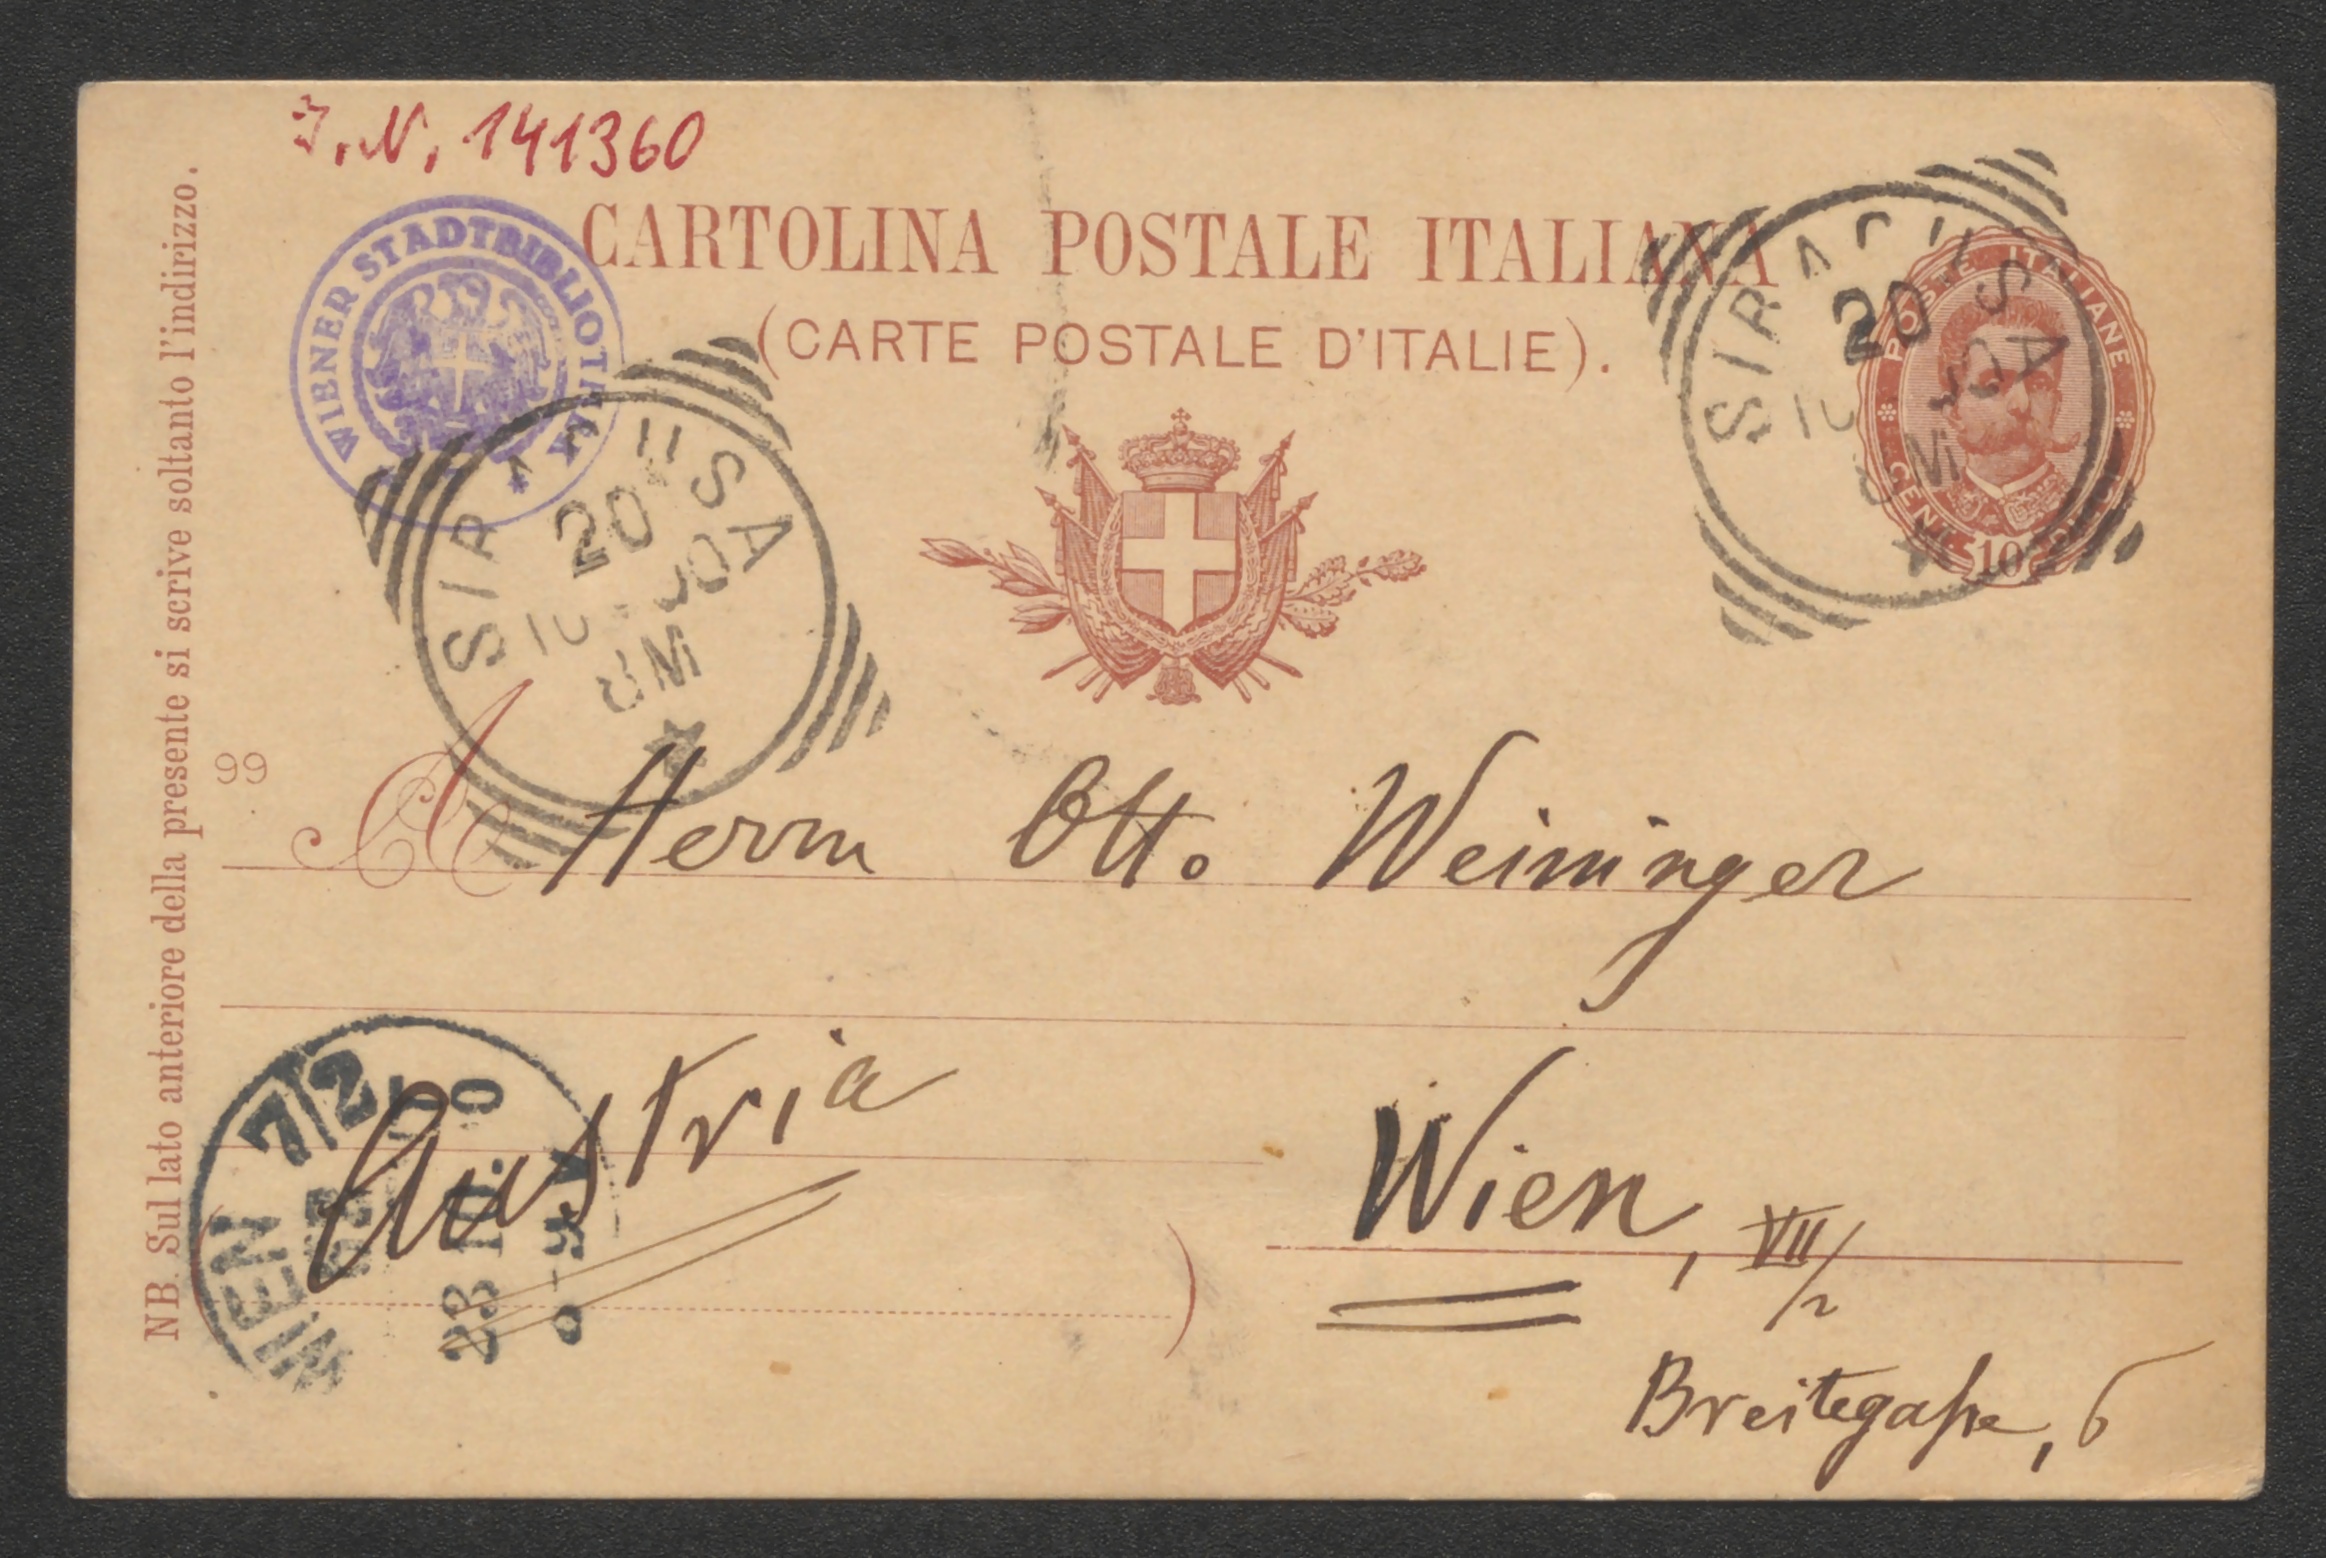 J. N. 141360
WIENER STADTBIBLIOTHEK
CARTOLINA POSTALE ITALIANA
(CARTE POSTALE D'ITALIE).
POSTE ITALIANE
CENT.
10
SIRACUSA
20
8M
SIRACUSA
20
8M
NB. Sul lato anteriore della presente si scrive soltanto l'indirizzo.
99
A Herrn Otto Weininger
Austria
Wien, VII/2
Breitegaße, 6
WIEN 7/2
23 10.